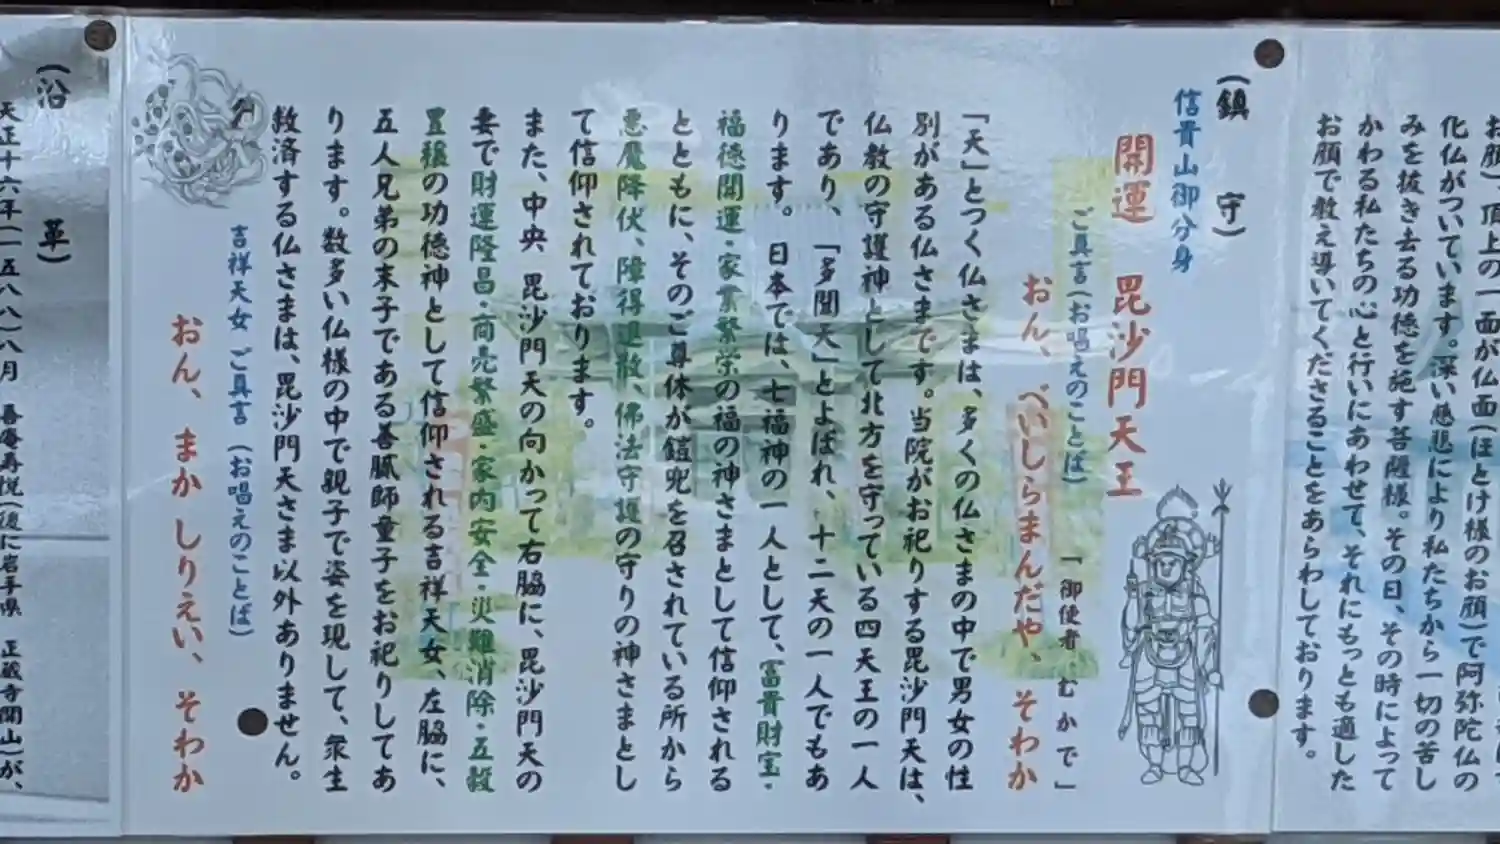 お顔)、頂上の一面が仏面(ほとけ様のお顔)で阿弥陀仏の
化仏がついています。深い慈悲により私たちから一切の苦し
みを抜き去る功徳を施す菩薩様。その日、その時によって
かわる私たちの心と行いにあわせて、それにもっとも適した
お顔で教え導いてくださることをあらわしております。
(鎮 守)
信貴山御分身
開運 毘沙門天王
ご真言(お唱えのことば)
「御使者 むかで」
おん、べいしらまんだや、そわか
「天」とつく仏さまは、多くの仏さまの中で男女の性
別がある仏さまです。当院がお祀りする毘沙門天は、
仏教の守護神として北方を守っている四天王の一人
であり、「多聞天」とよばれ、十二天の一人でもあ
ります。日本では、七福神の一人として、富貴財宝・
福徳開運・家業繁栄の福の神さまとして信仰される
とともに、そのご尊体が鎧兜を召されている所から
悪魔降伏、障得退散、佛法守護の守りの神さまとし
て信仰されております。
また、中央 毘沙門天の向かって右脇に、毘沙門天の
妻で財運隆昌・商売繁盛・家内安全・災難消除・五穀
豊穣の功徳神として信仰される吉祥天女、左脇に、
五人兄弟の末子である善膩師童子をお祀りしてあ
ります。数多い仏様の中で親子で姿を現して、衆生
救済する仏さまは、毘沙門天さま以外ありません。
吉祥天女 ご真言(お唱えのことば)
おん、まか しりえい、そわか
(沿 革)
天正十六年(一五八八)八月
正蔵寺開山)が、